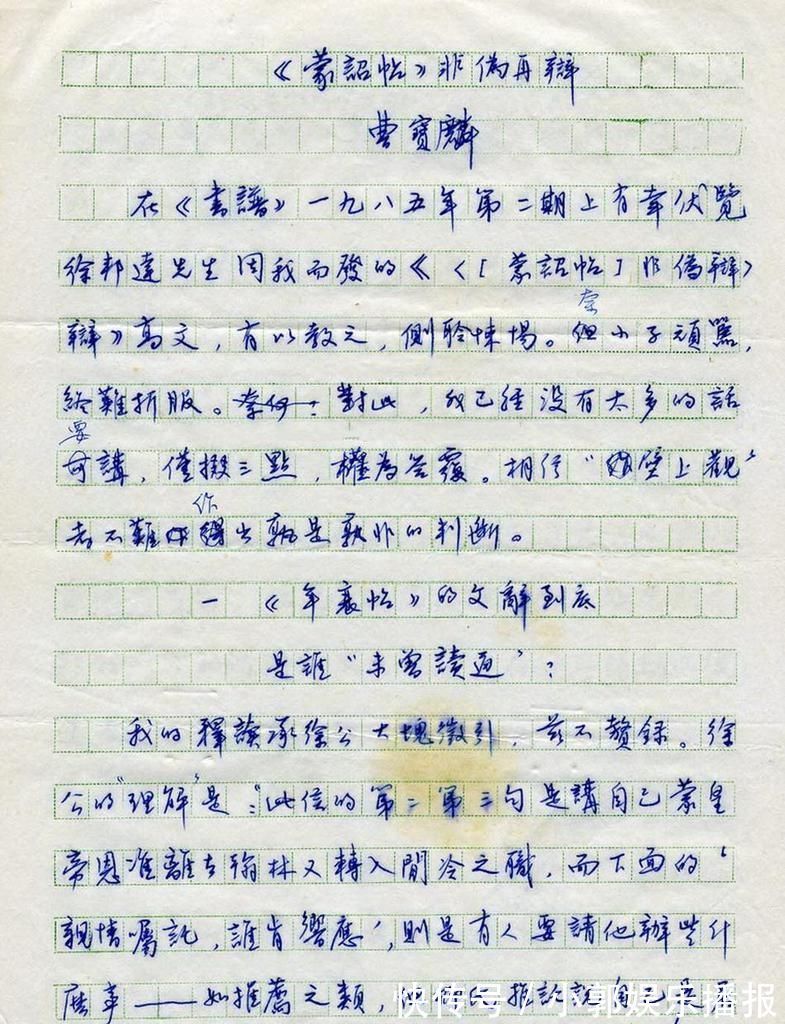 《蒙詔帖》非偽再辯
曹寶麟
在《書譜》一九八五年第二期上有幸伏覽
徐邦達先生因我而發的《〈[蒙詔帖]非偽辯〉
辯》高文，有以教之，側聆悚惕。奈但小子頑嚚，
終難折服。對此，我已經沒有太多的話
要可講，僅掇三點，權為答覆。相信“壁上觀”
者不難作出孰是孰非的判斷。
一 《年衰帖》的文辭到底
是誰“未曾讀通”？
我的釋讀承徐公大塊徵引，茲不贅錄。徐
公的“理解”是：“此信的第二第三句是講自己蒙皇
帝恩准離去翰林又轉入閒冷之職，而下面的‘
親情囑託，誰肯響應’，則是有人要請他辦些什
麼事——如推薦之類，
快传号/小郭娱乐播报